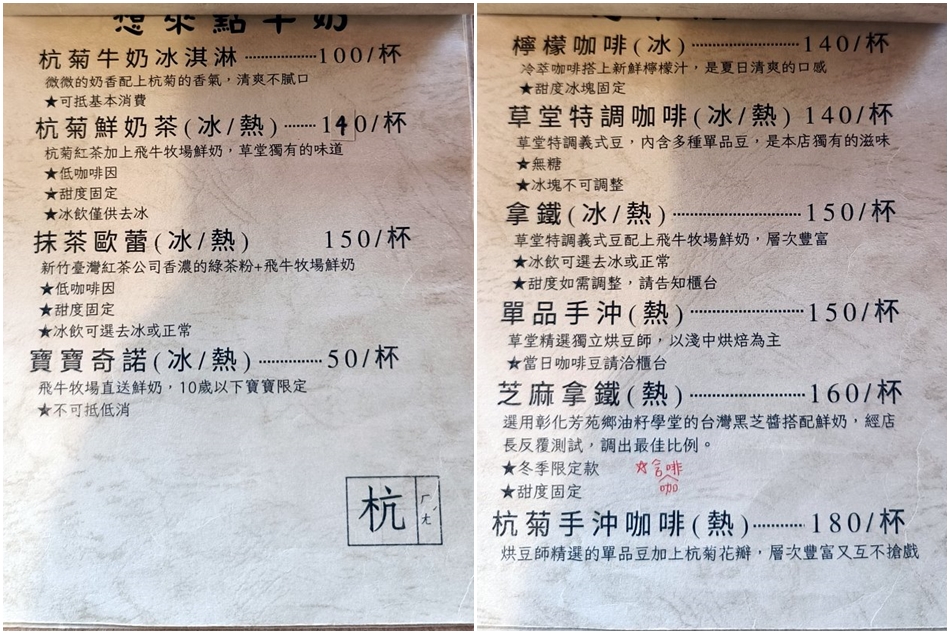 想來點牛奶
杭菊牛奶冰淇淋 ················100/杯
微微的奶香配上杭菊的香氣，清爽不膩口
★可抵基本消費
杭菊鮮奶茶(冰/熱) ······140/杯
杭菊紅茶加上飛牛牧場鮮奶，草堂獨有的味道
★低咖啡因
★甜度固定
★冰飲僅供去冰
抹茶歐蕾(冰/熱) 150/杯
新竹臺灣紅茶公司香濃的綠茶粉+飛牛牧場鮮奶
★低咖啡因
★甜度固定
★冰飲可選去冰或正常
寶寶奇諾(冰/熱) ············50/杯
飛牛牧場直送鮮奶，10歲以下寶寶限定
★不可抵低消
杭 ㄏㄤˊ
檸檬咖啡(冰) ····················140/杯
冷萃咖啡搭上新鮮檸檬汁，是夏日清爽的口感
★甜度冰塊固定
草堂特調咖啡(冰/熱) 140/杯
草堂特調義式豆，內含多種單品豆，是本店獨有的滋味
★無糖
★冰塊不可調整
拿鐵(冰/熱) ························150/杯
草堂特調義式豆配上飛牛牧場鮮奶，層次豐富
★冰飲可選去冰或正常
★甜度如需調整，請告知櫃台
單品手沖(熱) ····················150/杯
草堂精選獨立烘豆師，以淺中烘焙為主
★當日咖啡豆請洽櫃台
芝麻拿鐵(熱) ····················160/杯
選用彰化芳苑鄉油籽學堂的台灣黑芝醬搭配鮮奶，經店
長反覆測試，調出最佳比例。
★冬季限定款 ☆含咖啡
★甜度固定
杭菊手沖咖啡(熱)··········180/杯
烘豆師精選的單品豆加上杭菊花瓣，層次豐富又互不搶戲